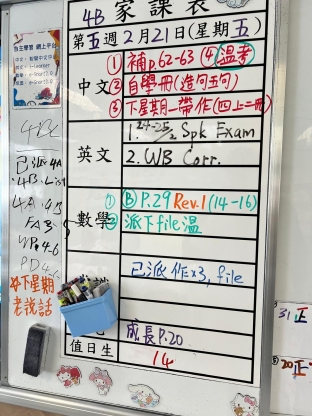 4B 家課表
第五週2月21日(星期五)
中文
① 補p.62-63 (4) 溫考
② 自學冊(造句五句)
③ 下星期一帶作(四上二冊)
英文
1. 24-25/2 Spk Exam
2. WB Corr.
數學
① Ⓑ P.29 Rev.1 (14-16)
② 派下file溫
已派作x3, file
成長P.20
值日生
14
自主學習 網上平台
已派4A
4B List
4A 4B
*下星期
老說話
31正
20正